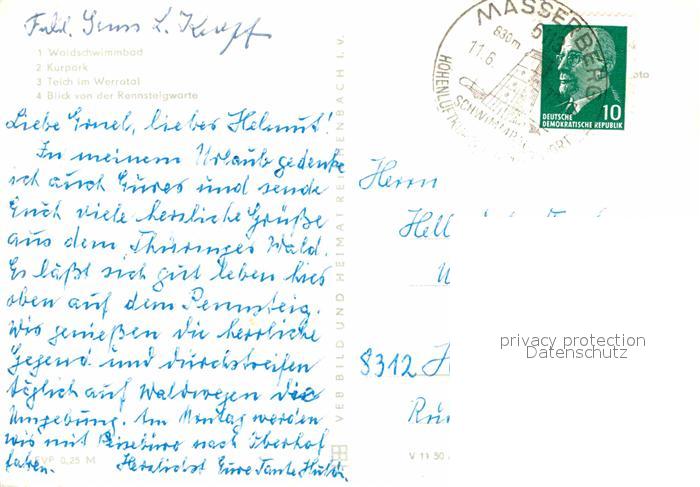 Frdl. Gruss L. Knopf
1 Waldschwimmbad
2 Kurpark
3 Teich im Werratal
4 Blick von der Rennsteigwarte
Liebe Gretel, liebes Helmut!
In meinem Urlaub gedenke
ich auch Eures und sende
Euch viele herzliche Grüße
aus dem Thüringer Wald.
Es läßt sich gut leben hier
oben auf dem Rennsteig.
Wir genießen die herrliche
Gegend und durchstreifen
täglich auf Waldwegen die
Umgebung. Am Montag werden
wir mit Reisebüro nach Oberhof
fahren. Herzlichst Eure Tante
EVP 0,25 M
VEB BILD UND HEIMAT REICHENBACH I. V.
MASSERBERG
830m
11.6.
DEUTSCHE
DEMOKRATISCHE REPUBLIK
10
Herrn
Hell
8312 H
V 11 50
privacy protection
Datenschutz